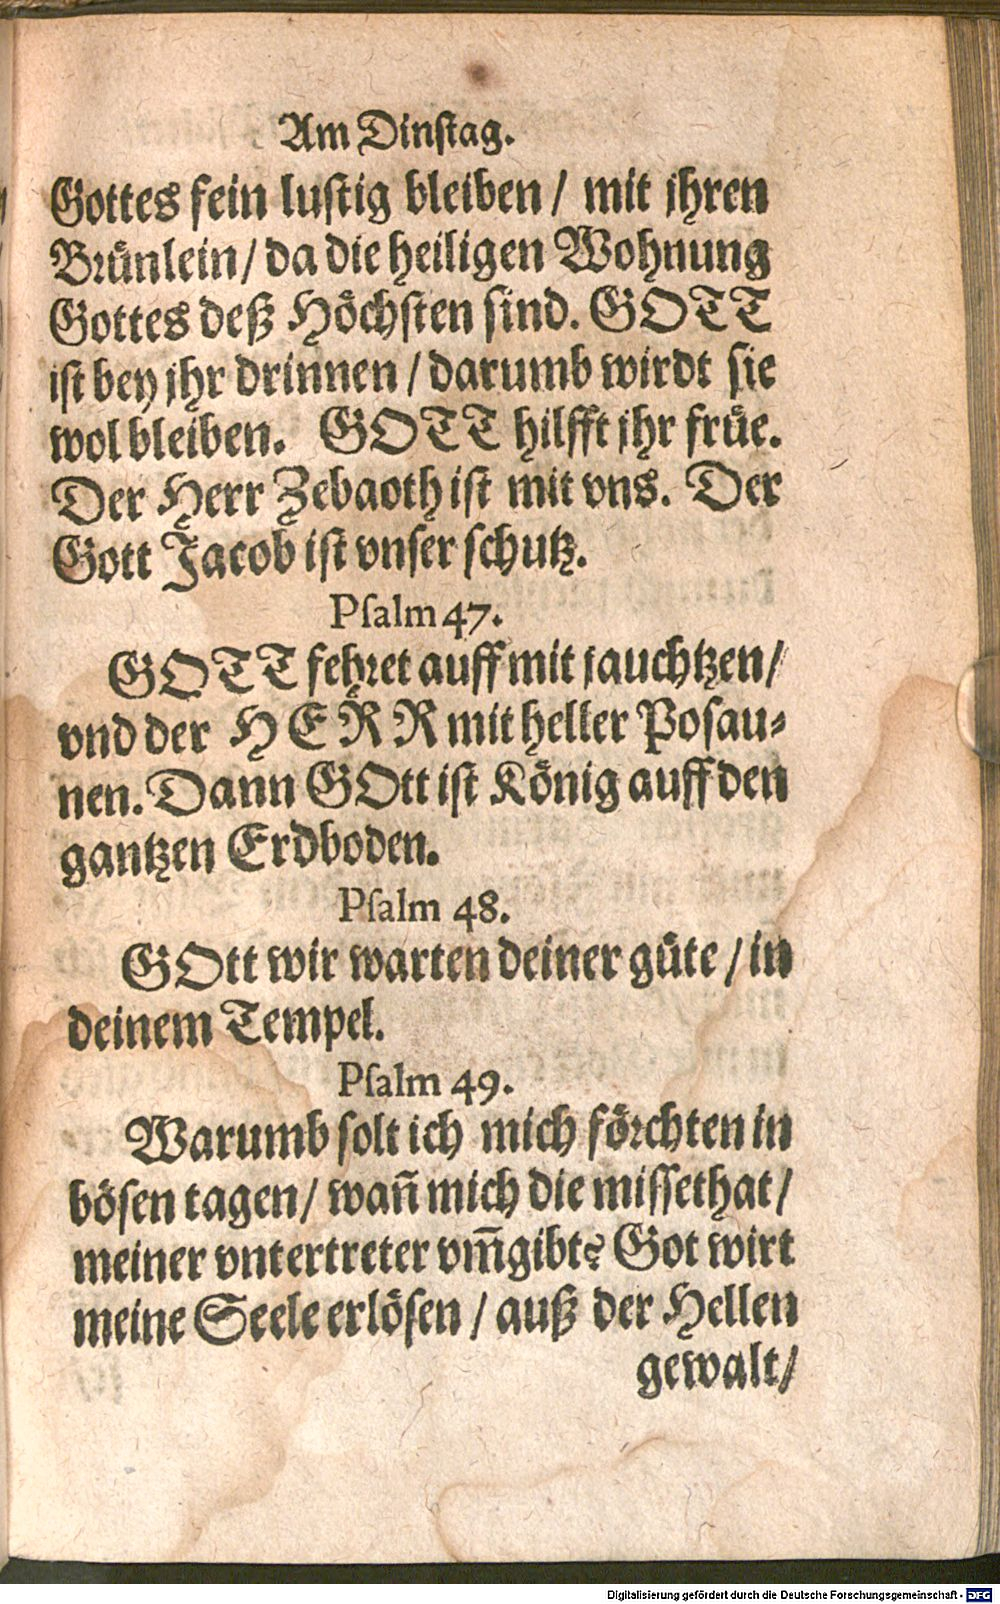 Am Dinſtag.
Gottes fein luſtig bleiben / mit jhren
Brünlein / da die heiligen Wohnung
Gottes deß Höchſten ſind. GOTT
iſt bey jhr drinnen / darumb wirdt ſie
wol bleiben. GOTT hilfft jhr früe.
Der Herr Zebaoth iſt mit vns. Der
Gott Jacob iſt vnſer ſchutz.
Pſalm 47.
GOTT fehret auff mit jauchtzen /
vnd der HERR mit heller Poſau⸗
nen. Dann GOtt iſt König auff den
gantzen Erdboden.
Pſalm 48.
GOtt wir warten deiner güte / in
deinem Tempel.
Pſalm 49.
Warumb ſolt ich mich förchten in
böſen tagen / wañ mich die miſſethat /
meiner vntertreter vm̃gibt? Got wirt
meine Seele erlöſen / auß der Hellen
gewalt /
Digitalisierung gefördert durch die Deutsche Forschungsgemeinschaft - DFG